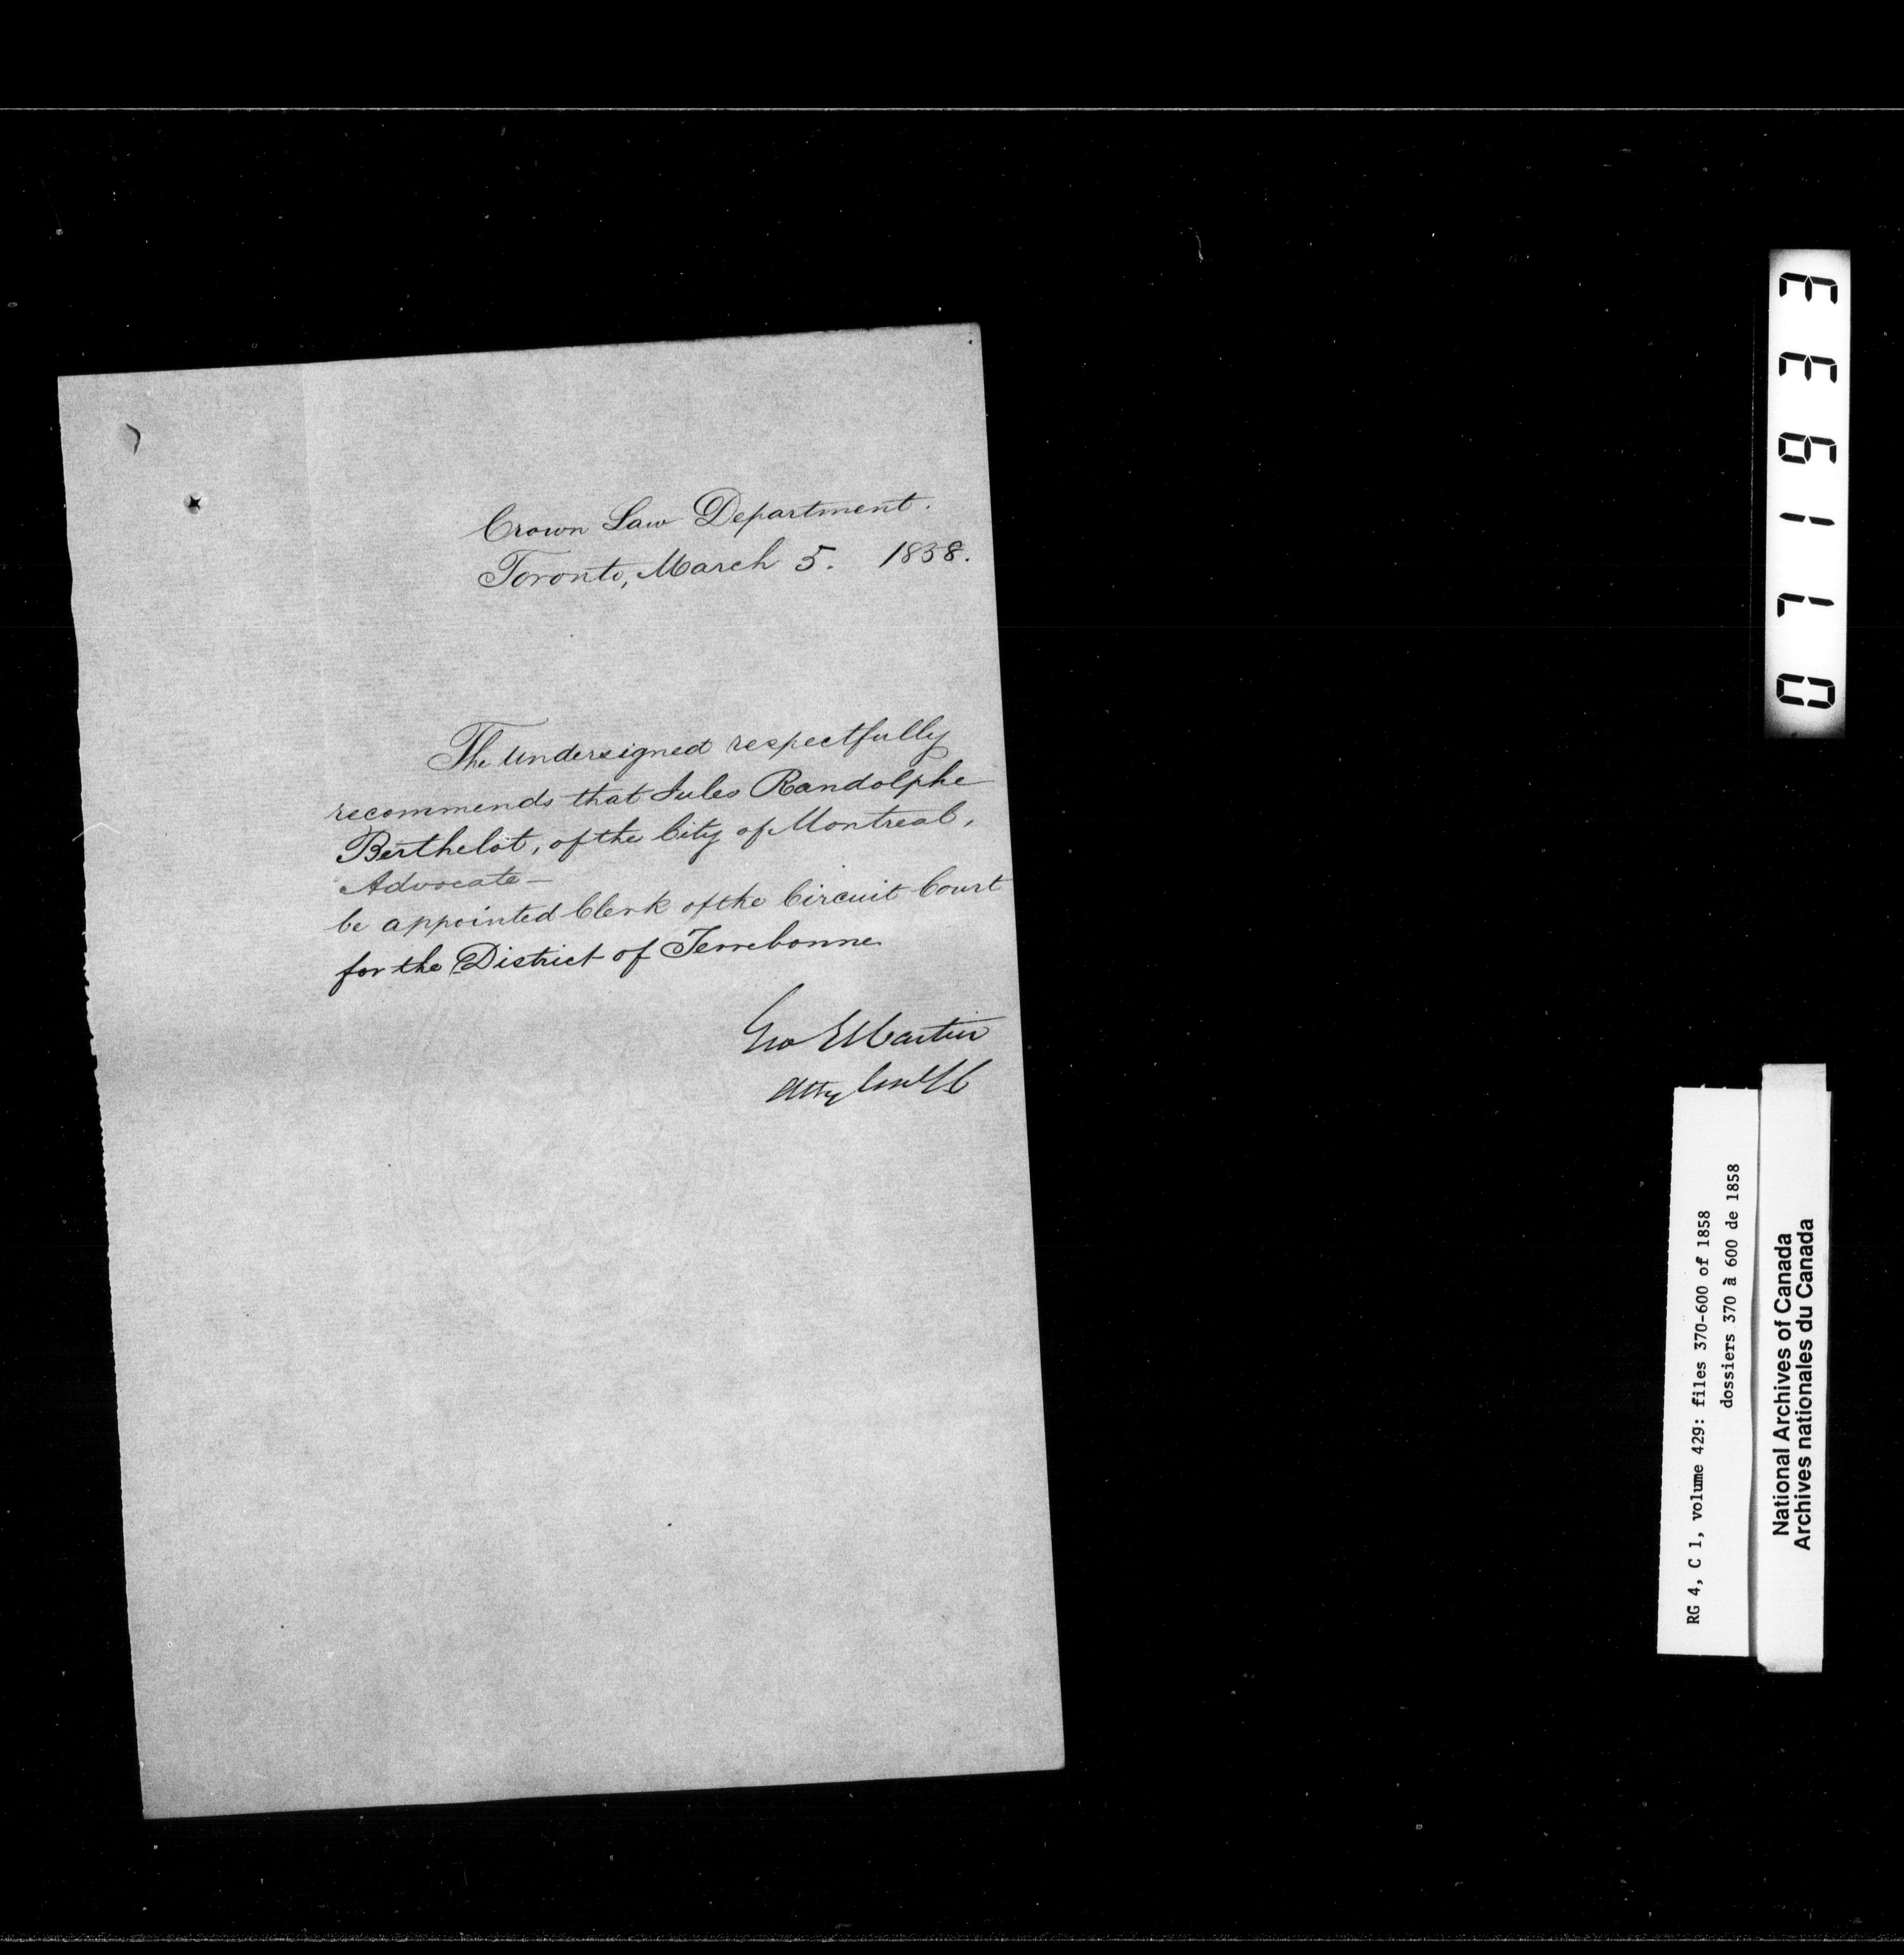 Crown Law Department.
Toronto, March 5. 1858.
The undersigned respectfully
recommends that Jules Randolphe
Berthelot, of the City of Montreal,
Advocate—
be appointed Clerk of the Circuit Court
for the District of Terrebonne
Geo E Cartier
Atty Genl LC
071633
RG 4, C 1, volume 429: files 370-600 of 1858
dossiers 370 à 600 de 1858
National Archives of Canada
Archives nationales du Canada